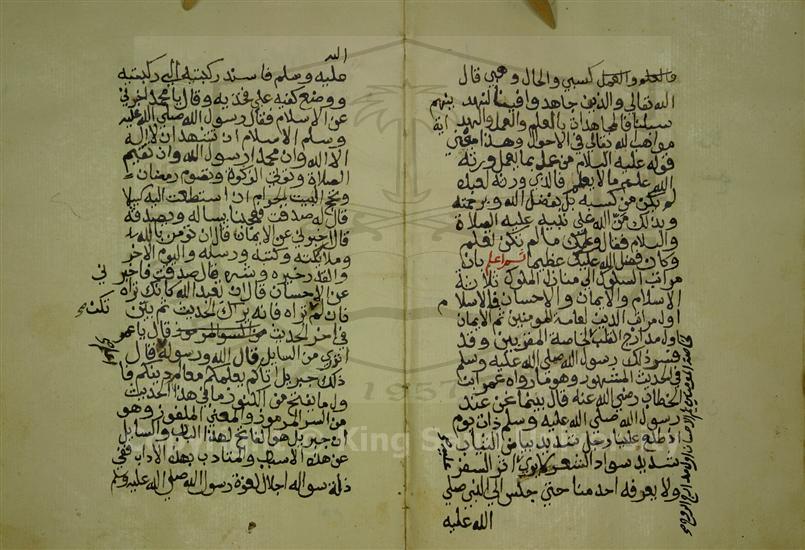 فالعلم والعمل كسبي والحال وهبي قال
الله تعالى والذين جاهدوا فينا لنهدينهم
سبلنا فالمجاهدات بالعلم والعمل والهداية
مواهب الله تعالى في الاحوال وهذا معني
قوله عليه السلام من عمل بما يعلم ورثه
الله علم ما لا يعلم فالذي ورثه العبد
لم يكن من كسبه بل بفضل الله ورحمته
وبذلك من الله على نبيه عليه الصلاة
والسلام فقال وعلمك ما لم تكن تعلم
وكان فضل الله عليك عظيما ثم اعلم بان
مراتب السلوك الي منازل الملوك ثلاثة
الاسلام والايمان والاحسان فالاسلام
اول مراتب الدين لعامة المومنين ثم الايمان
اول مدارج القلب لخاصة المقربين وقد
فسر ذلك رسول الله صلى الله عليه وسلم
في الحديث المشهور وهو ما رواه عمر ابن
الخطاب رضي الله عنه قال بينما نحن عند
رسول الله صلى الله عليه وسلم ذات يوم
اذ طلع علينا رجل شديد بياض الثياب
شديد سواد الشعر لا يري عليه اثر السفر
ولا يعرفه احد منا حتي جلس الي النبي صلي
الله عليه
الله
عليه وسلم فاسند ركبته الي ركبته
ووضع كفيه علي فخذيه وقال يا محمد اخبرني
عن الاسلام فقال رسول الله صلي الله عليه
وسلم الاسلام ان تشهد ان لا اله
الا الله وان محمدا رسول الله وان تقيم
الصلاة وتوتي الزكوة وتصوم رمضان
وتحج البيت الحرام ان استطعت اليه سبيلا
قال له صدقت فعجبنا يساله ويصدقه
قال اخبرني عن الايمان قال ان تومن بالله
وملائكته وكتبه ورسله واليوم الاخر
والقدر خيره وشره قال صدقت فاخبرني
عن الاحسان قال ان تعبد الله كانك تراه
فان لم تكن تراه فانه يراك الحديث ثم بين
في اخر الحديث قال يا عمر
اتدري من السايل قال الله ورسوله اعلم قال
ذلك جبريل اتاكم يعلمكم معالم دينكم فا
ول ما يفتح من الكنوز ما في هذا الحديث
من السر المرموز والمعني الملغوز وهو
ان جبريل هو الفاتح لهذا الباب والسايل
عن هذه الاسباب والمتادب بهذه الاداب ففي
ذلة سواله اجلال لعزة رسول الله صلي الله عليه وسلم